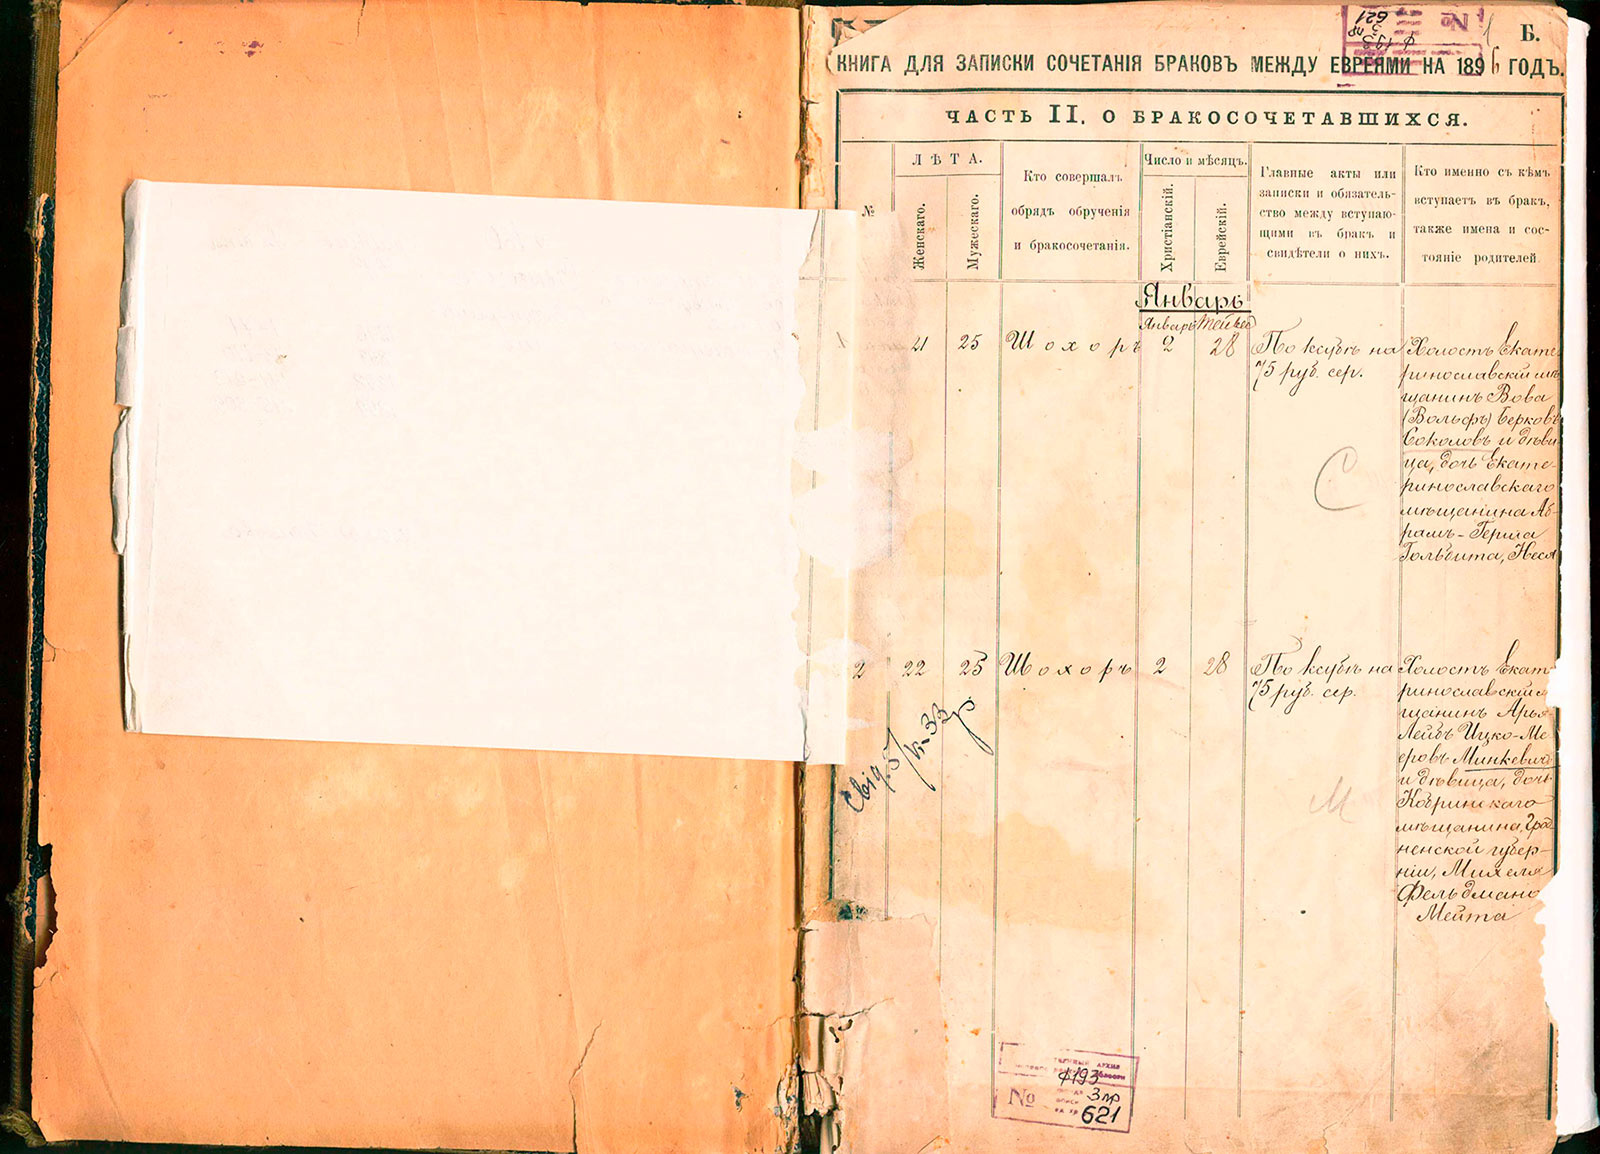 Б.
КНИГА ДЛЯ ЗАПИСКИ СОЧЕТАНІЯ БРАКОВЪ МЕЖДУ ЕВРЕЯМИ НА 1896 ГОДЪ.
ЧАСТЬ II. О БРАКОСОЧЕТАВШИХСЯ.
№
ЛѢТА.
Женскаго.
Мужескаго.
Кто совершалъ
обрядъ обрученія
и бракосочетанія.
Число и мѣсяцъ.
Христіанскій.
Еврейскій.
Главные акты или
записки и обязатель-
ство между вступаю-
щими въ бракъ и
свидѣтели о нихъ.
Кто именно съ кѣмъ
вступаетъ въ бракъ,
также имена и сос-
тояніе родителей
Январь
Январь
1 21 25 Шохоръ 2 28
По ктубѣ на
75 руб. сер.
Холостъ Екате-
ринославскій мѣ
щанинъ Вова
(Вольфъ) Берковъ
Соколовъ и дѣви-
ца, дочь Екате-
ринославскаго
мѣщанина Аб-
рамъ-Герша
Гольбита, Неся
С
2 22 25 Шохоръ 2 28
По ктубѣ на
75 руб. сер.
Холостъ Екат
ринославскій м
щанинъ Арья-
Лейбъ Ицко-Ме
еровъ Минкевичъ
и дѣвица, дочь
Кобринскаго
мѣщанина, Грод
ненской губер-
ніи, Михеля
Фельдмана
Мейта
М
Свід. 5/IV-33 р
Ф193
3 пр
№ 621